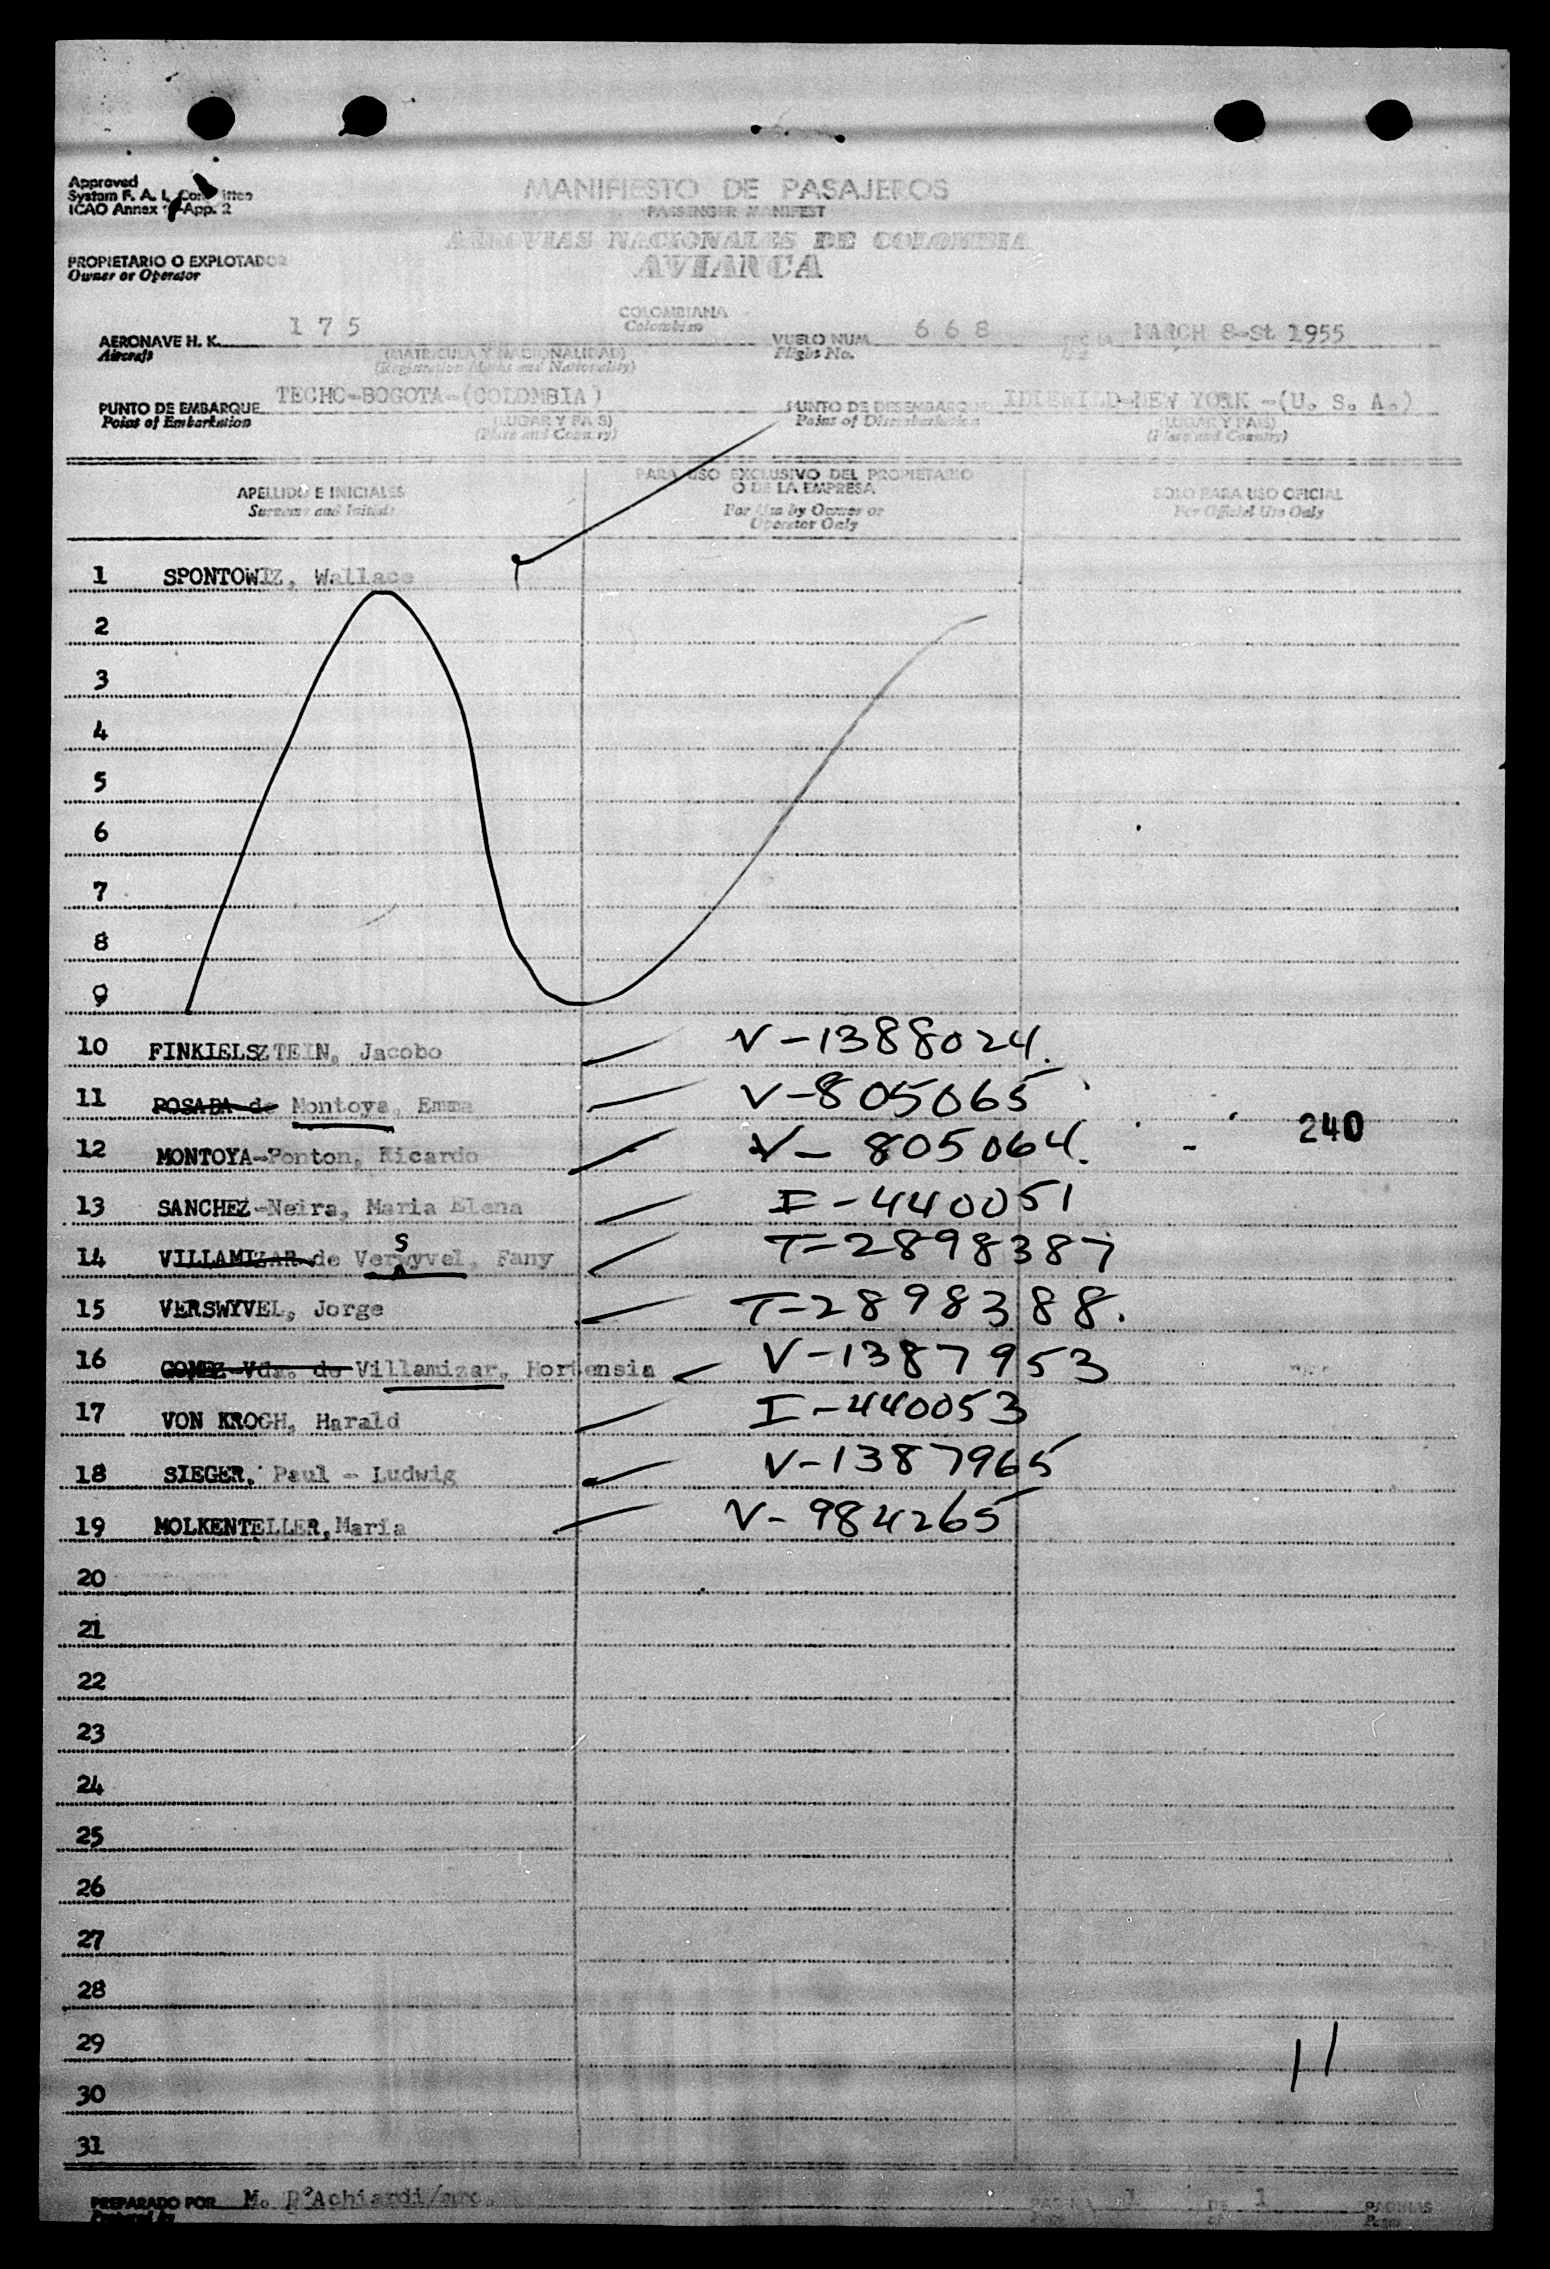 Approved
System F. A. L. Committee
ICAO Annex 9 App. 2
MANIFIESTO DE PASAJEROS
PASSENGER MANIFEST
AEROVIAS NACIONALES DE COLOMBIA
AVIANCA
PROPIETARIO O EXPLOTADOR
Owner or Operator
AERONAVE H. K. 1 7 5 COLOMBIANA VUELO NUM. 6 6 8 FECHA MARCH 8-St 1955
Aircraft Colombian Flight No.
(MATRICULA Y NACIONALIDAD)
(Registration Marks and Nationality)
PUNTO DE EMBARQUE TECHO-BOGOTA-(COLOMBIA) PUNTO DE DESEMBARQUE IDLEWILD-NEW YORK -(U. S. A.)
Point of Embarkation (LUGAR Y PAIS) Point of Disembarkation (LUGAR Y PAIS)
(Place and Country) (Place and Country)
APELLIDO E INICIALES PARA USO EXCLUSIVO DEL PROPIETARIO O DE LA EMPRESA SOLO PARA USO OFICIAL
Surname and Initials For Use by Owner or Operator Only For Official Use Only
1 SPONTOWIZ, Wallace
2
3
4
5
6
7
8
9
10 FINKIELSZTEIN, Jacobo V-1388024.
11 POSADA de Montoya, Emma V-805065
12 MONTOYA-Ponton, Ricardo V- 805064. - 240
13 SANCHEZ-Neira, Maria Elena I-440051
14 VILLAMIZAR de Verswyvel, Fany T-2898387
15 VERSWYVEL, Jorge T-2898388.
16 GOMEZ-Vda. de Villamizar, Hortensia V-1387953
17 VON KROGH, Harald I-440053
18 SIEGER, Paul - Ludwig V-1387965
19 MOLKENTELLER,Maria V-984265
20
21
22
23
24
25
26
27
28
29 11
30
31
PREPARADO POR M. D'Achiardi/ 1 DE 1 PAGINAS
Prepared by of Pages